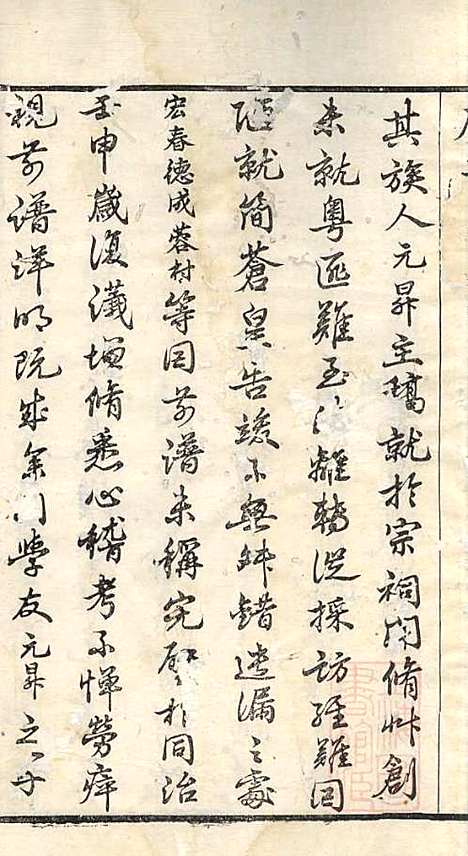 其族人元昇主璚就於宗祠間脩艸創
未就粤匪難至流離轉徙採訪維難因
陋就簡蒼皇告竣不無舛錯遺漏之處
宏春德成蓉村等因前譜未稱完璧於同治
壬申歲復議增脩悉心稽考不憚勞瘁
視前譜詳明既成余同學友元昇之子